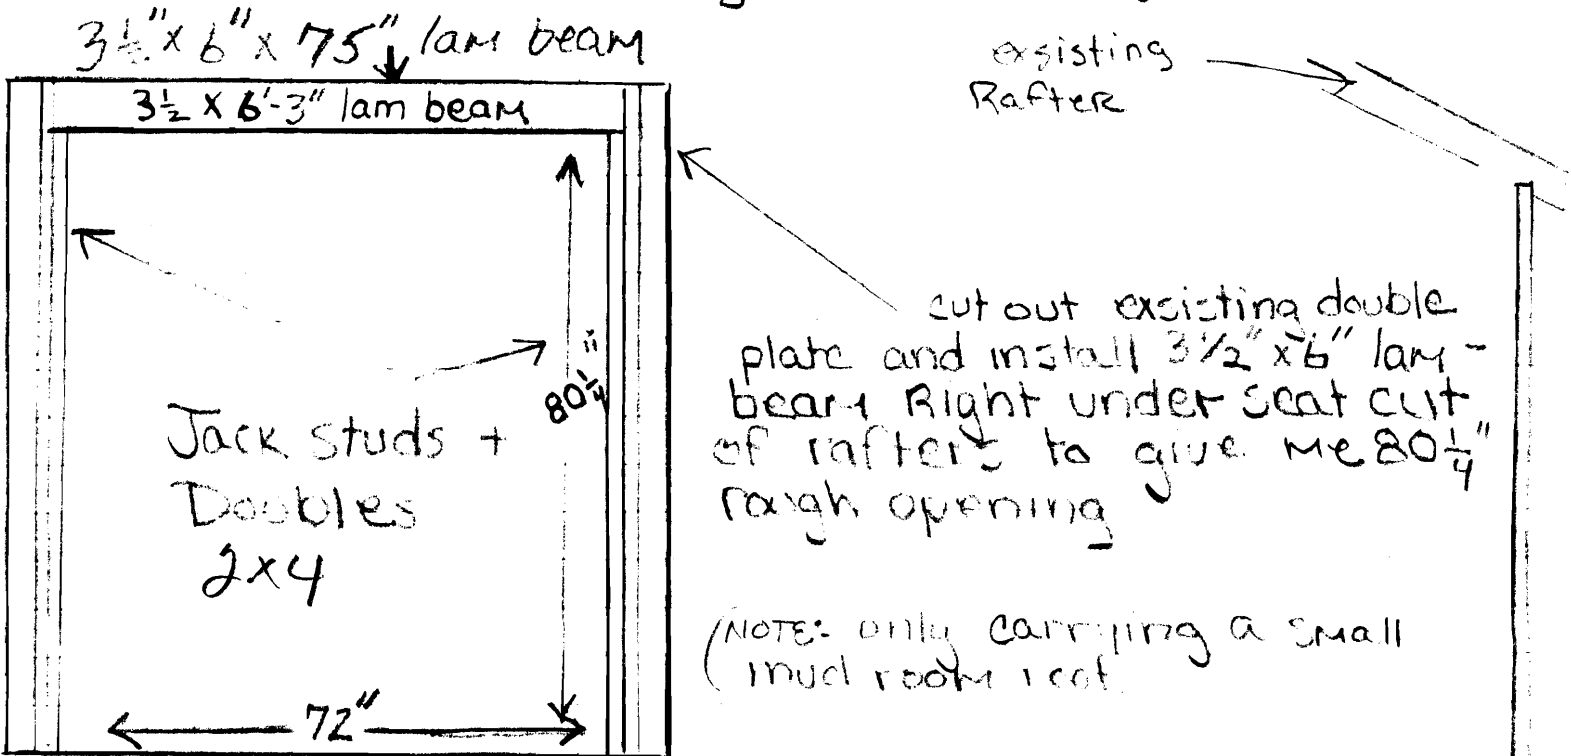 3½"x 6" x 75" lam beam
3½ X 6'-3" lam beam
exsisting
Rafter
80¼"
Jack studs +
Doubles
2x4
72"
cut out exsisting double
plate and install 3½" x 6" lam-
beam Right under seat cut
of rafters to give me 80¼"
rough opening
(NOTE: only carrying a small
mud room roof